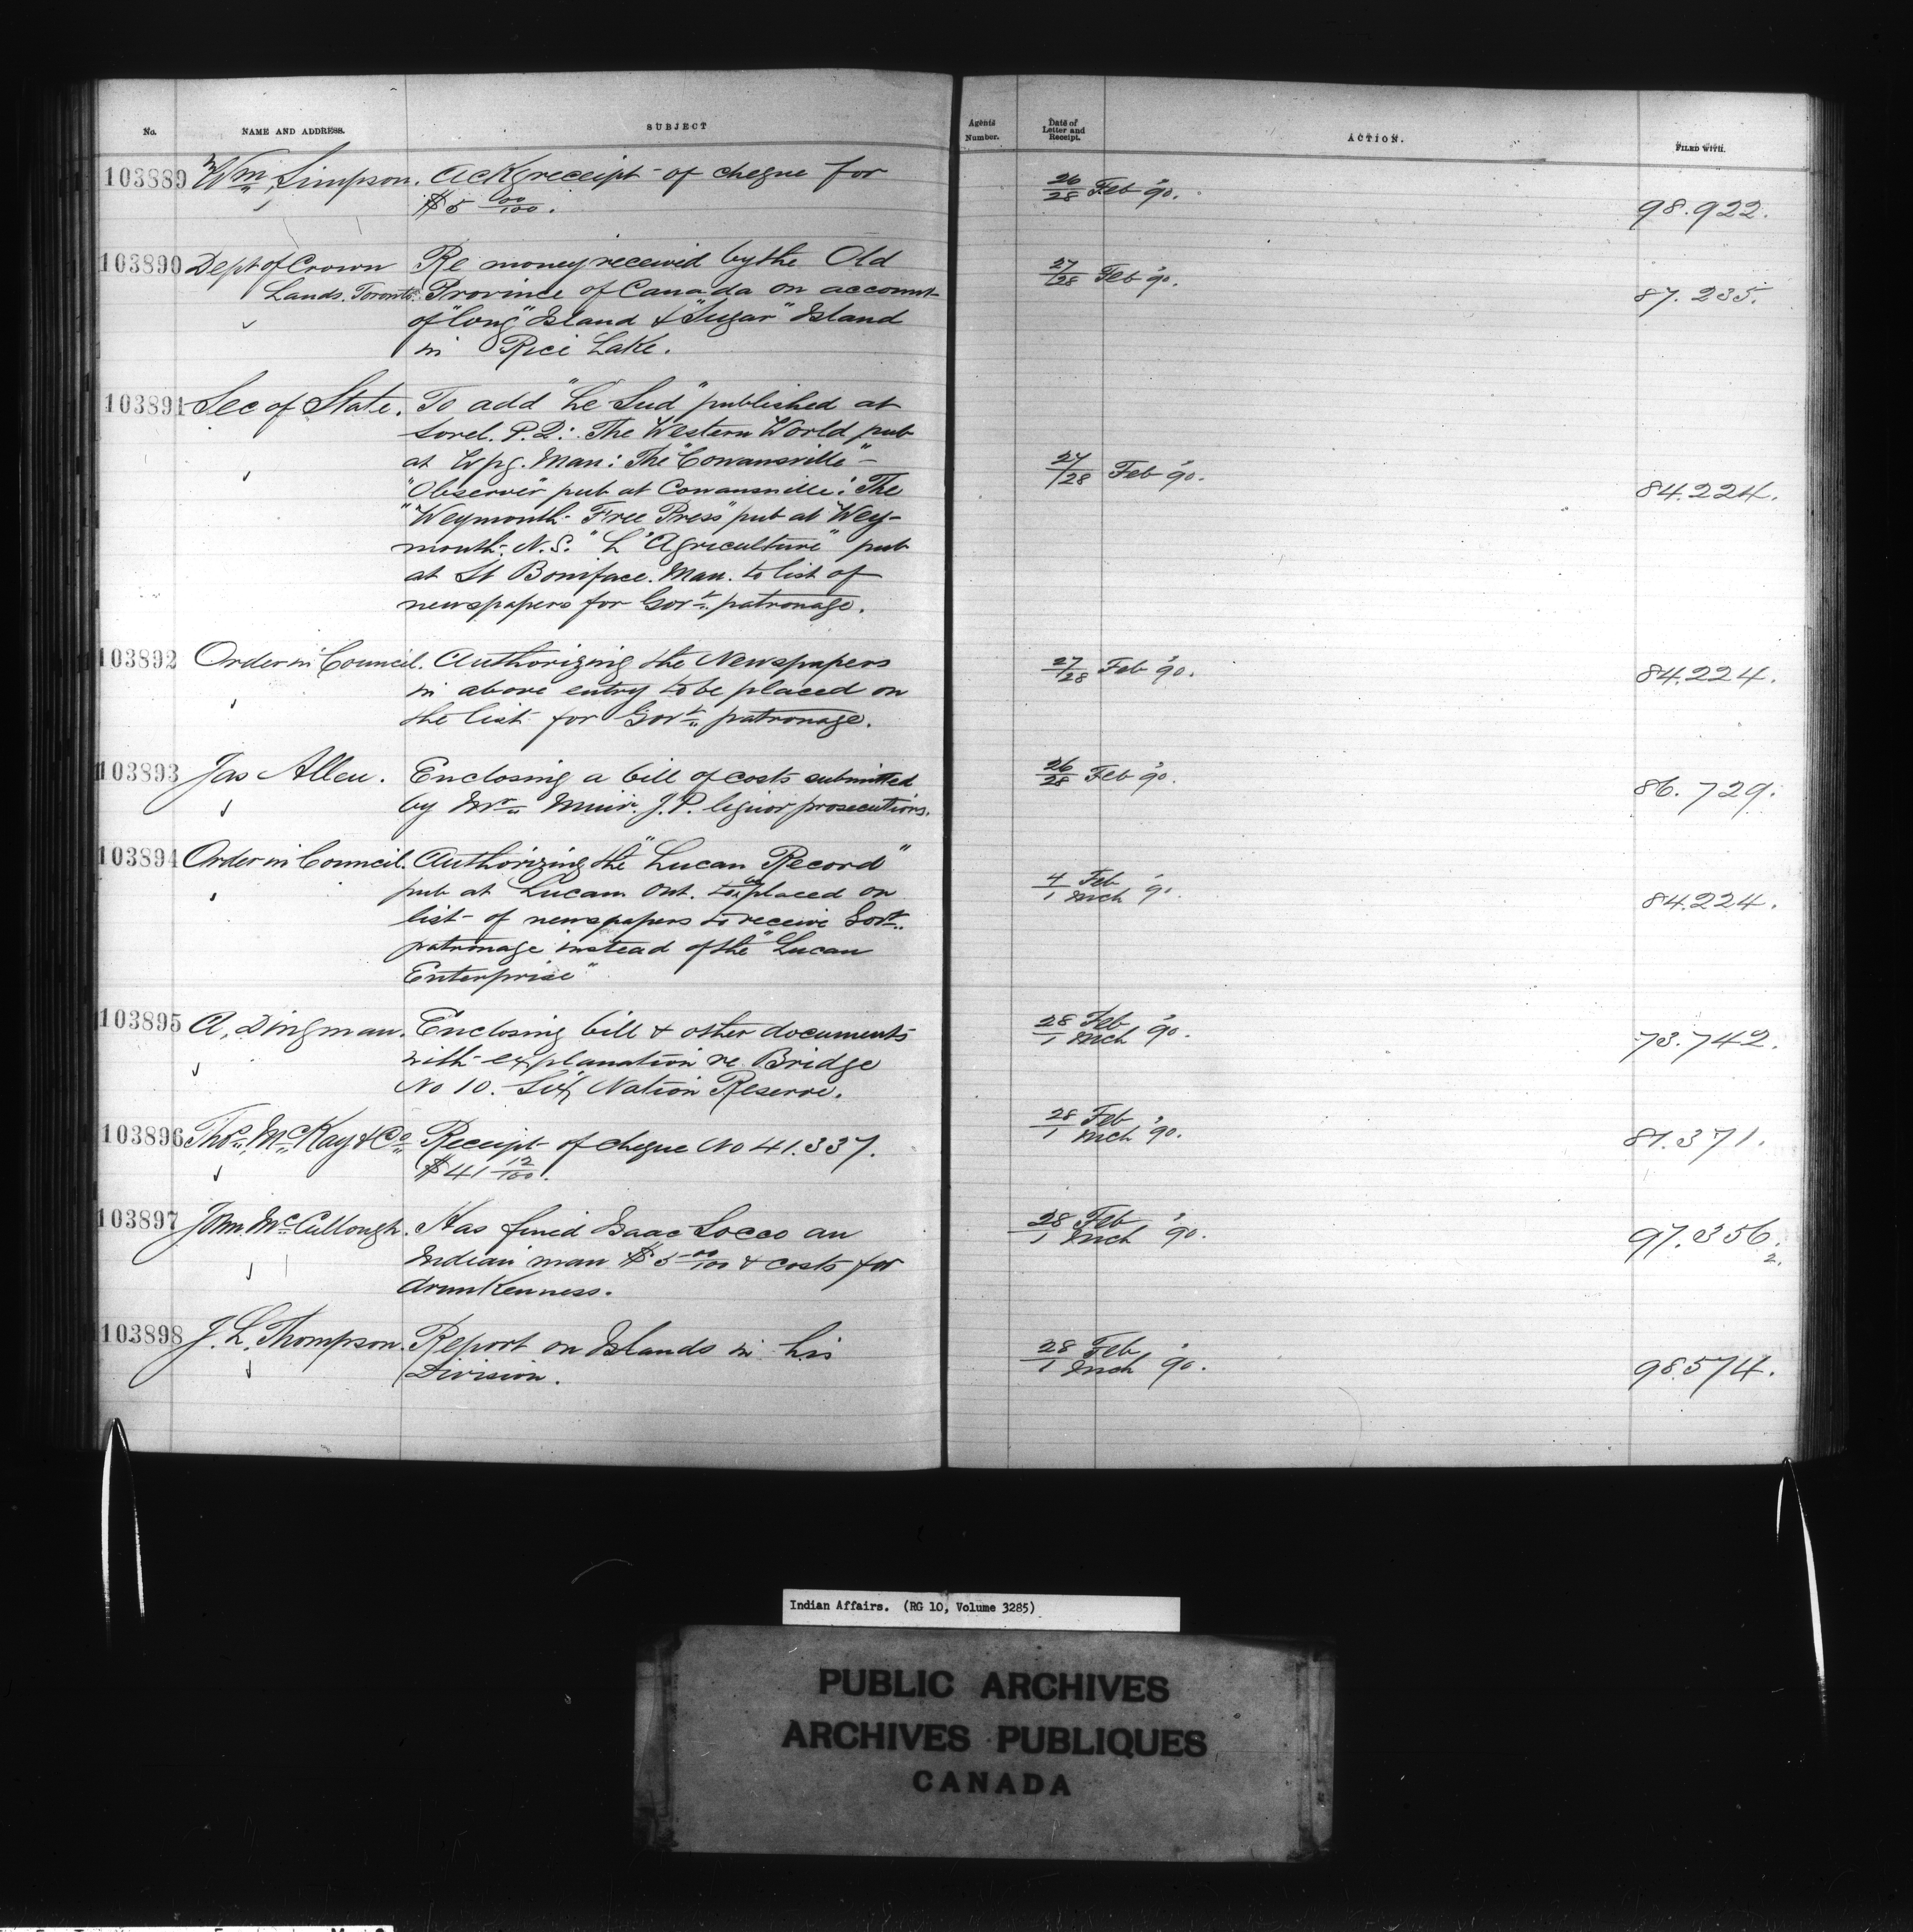 No. NAME AND ADDRESS. SUBJECT Agents Number. Date of Letter and Receipt. ACTION. FILED WITH.
103889 Wm Simpson. Ackg receipt of cheque for 26/28 Feb '90. 98.922.
$5 00/100.
103890 Dept of Crown Re money received by the Old 27/28 Feb '90. 87.235.
Lands. Toronto. Province of Canada on account
of "Long" Island & "Sugar" Island
in Rice Lake.
103891 Sec of State. To add "Le Sud" published at
Sorel. P.Q: The Western World pub
at Wpg. Man: The "Cowansville" 27/28 Feb '90. 84.224.
"Observer" pub at Cowansville: The
"Weymouth Free Press" pub at Wey-
mouth, N.S. "L'Agriculture" pub
at St Boniface. Man. to list of
newspapers for Govt. patronage.
103892 Order in Council. Authorizing the Newspapers 27/28 Feb '90. 84.224.
in above entry to be placed on
the list for Govt. patronage.
103893 Jas Allen. Enclosing a bill of costs submitted 26/28 Feb '90. 86.729.
by Mr Muir. J.P. liquor prosecutions.
103894 Order in Council. Authorizing the "Lucan Record"
pub at Lucan Ont. to be placed on 4/1 Feb/Mch '90. 84.224.
list of newspapers to receive Govt.
patronage instead of the "Lucan
Enterprise"
103895 A. Dingman. Enclosing bill & other documents 28/1 Feb/Mch '90. 73.742.
with explanation re Bridge
No 10. Six Nation Reserve.
103896 Thos. McKay & Co Receipt of cheque No 41.337. 28/1 Feb/Mch '90. 81.371.
$41 12/100.
103897 John McCullough. Has fined Isaac Socco an 28/1 Feb/Mch '90. 97.356.
2.
Indian man $5 00/100 & costs for
drunkenness.
103898 J. L. Thompson. Report on Islands in his 28/1 Feb/Mch '90. 98.574.
Division.
Indian Affairs. (RG 10, Volume 3285)
PUBLIC ARCHIVES
ARCHIVES PUBLIQUES
CANADA